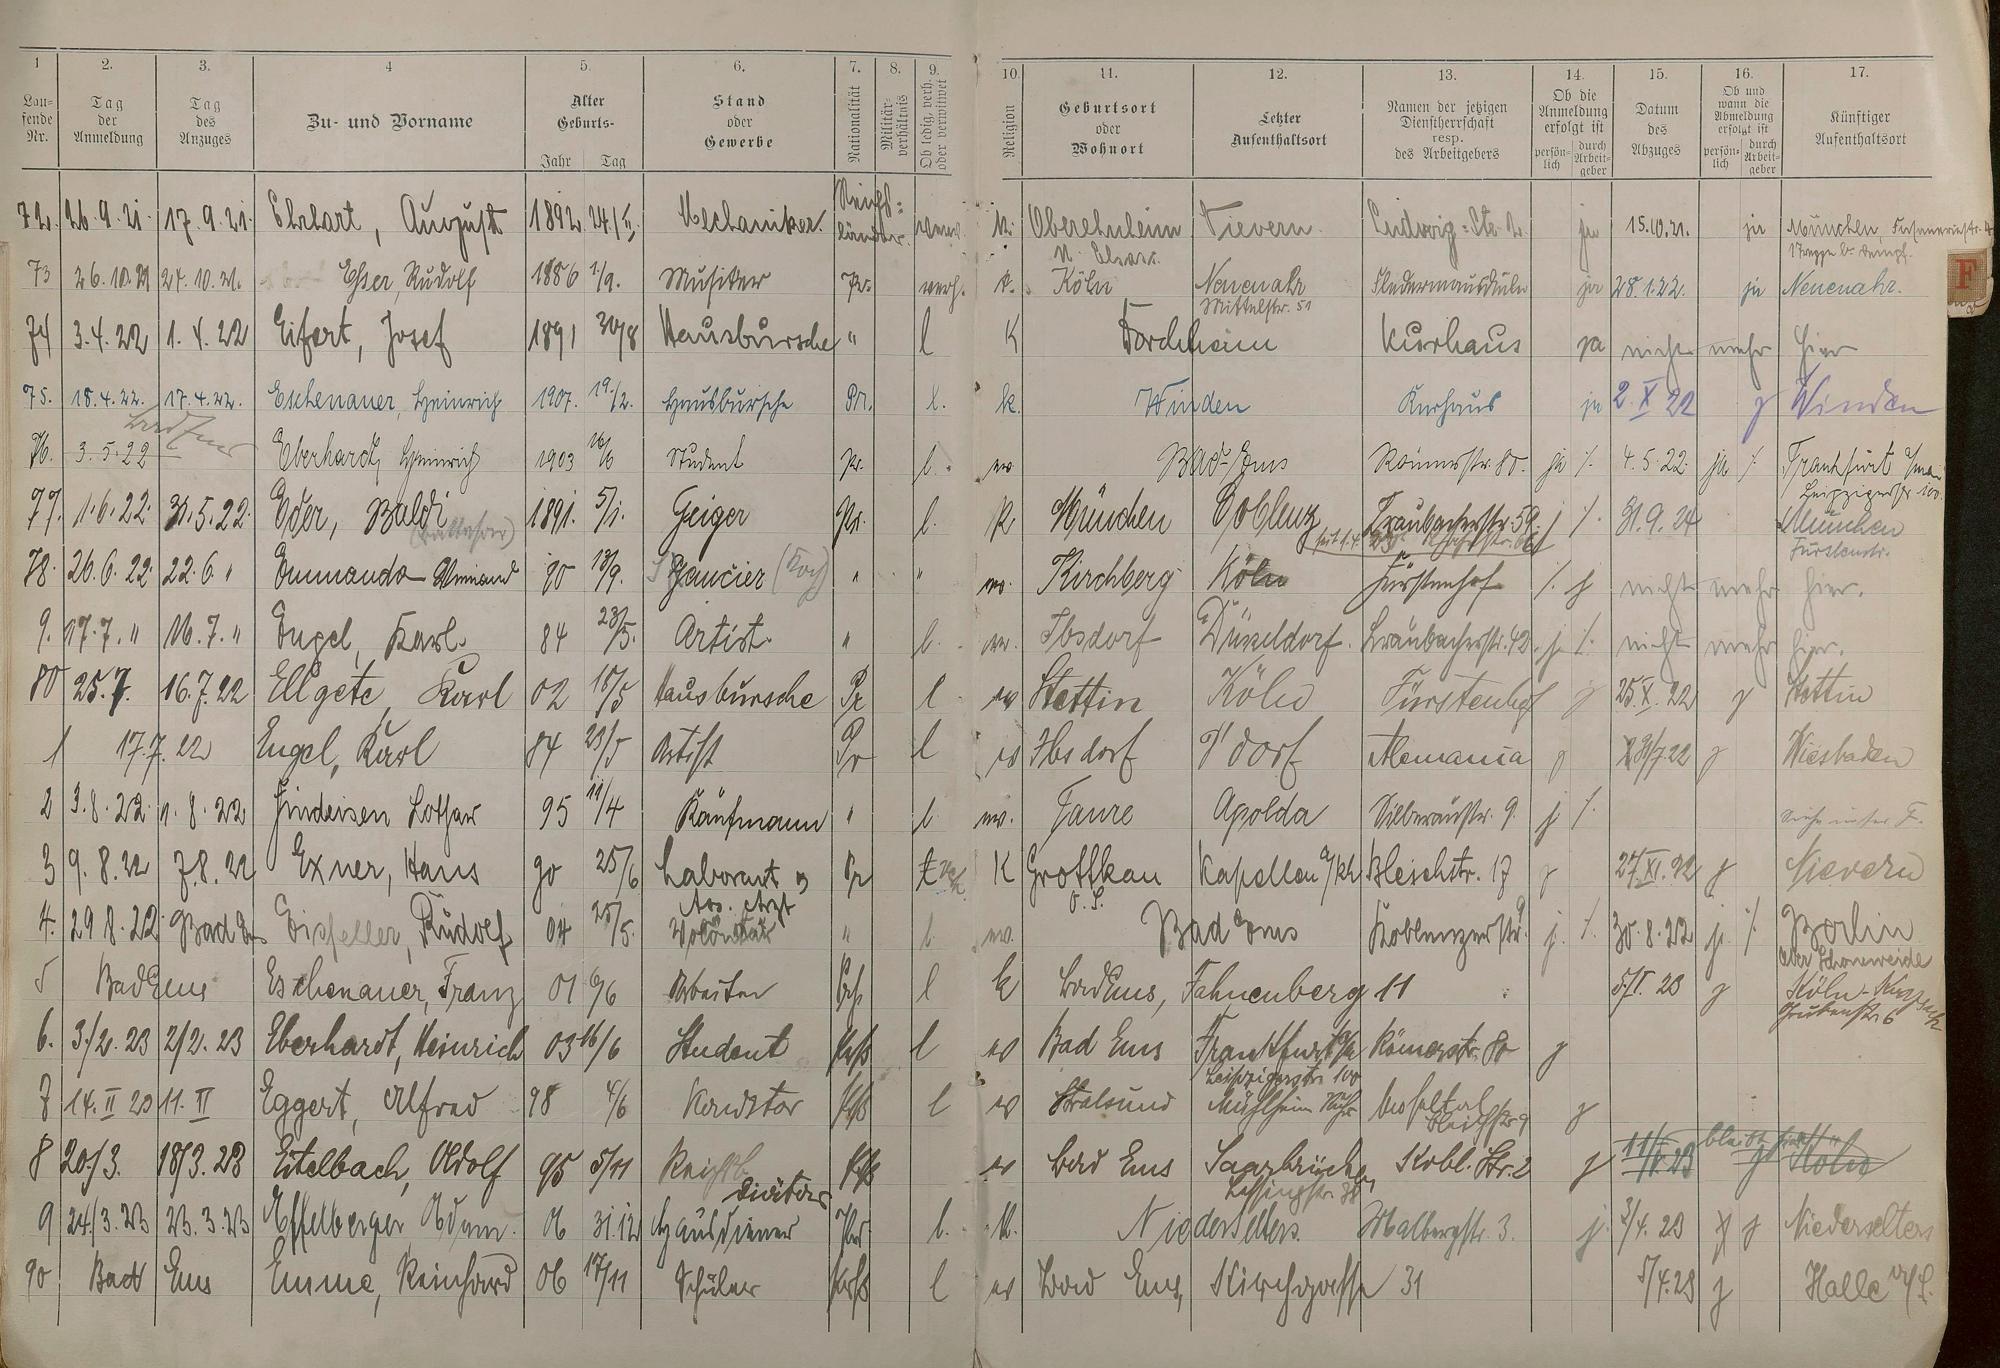 1 2. 3. 4 5. 6. 7. 8. 9. 10. 11. 12. 13. 14. 15. 16. 17.
Lau-fende Nr. Tag der Anmeldung Tag des Anzuges Zu- und Vorname Alter Geburts- Jahr Tag Stand oder Gewerbe Nationalität Militär-verhältnis Ob ledig, verh. oder verwitwet Religion Geburtsort oder Wohnort Letzter Aufenthaltsort Namen der jetzigen Dienstherrschaft resp. des Arbeitgebers Ob die Anmeldung erfolgt ist persön-lich durch Arbeit-geber Datum des Abzuges Ob und wann die Abmeldung erfolgt ist persön-lich durch Arbeit-geber Künftiger Aufenthaltsort
72. 26.9.21. 17.9.21. Ehrhart, August 1892 Mechaniker. Reichs=länder k. Oberehnheim Nievern ja 15.10.21. ja München
73 26.10.21 24.10.21. Esser, Rudolf 1886 1/9. Musiker Pr. verh. k. Köln Neuenahr Mittelstr. 51 ja 28.1.22. ja Neuenahr.
74 3.4.22 1.4.22 Eifert, Josef 1891 30/8 Hausbursche " l K Forchheim Kurhaus ja nicht mehr hier
75. 18.4.22. 17.4.22. Eschenauer, Heinrich 1907. 19./2. Hausbursche Pr. l. k. Winden Kurhaus ja 2.X 22 j Winden
76. 3.5.22 Bad Ems Eberhardt, Heinrich 1903 16/6 Student Pr. l. ev Bad-Ems Römerstr. 80. ja /. 4.5.22. ja /. Frankfurt a/Main Leipzigerstr. 100.
77. 1.6.22. 31.5.22. Eder, Baldi (Balthasar) 1891. 5/1. Geiger Pr. l. k. München Coblenz Braubacherstr. 59. j /. 31.9.24 München Fürstenstr.
78. 26.6.22. 22.6. " 90 13/9. (Koch) " " ev. Kirchberg Köln Fürstenhof /. j nicht mehr hier.
9. 17.7. " 16.7. " Engel, Karl. 84 23/5. Artist. " l. ev. Ibsdorf Düsseldorf. Braubacherstr. 42. j /. nicht mehr hier.
80 25.7. 16.7.22 Ellgete, Karl 02 15/5 Hausbursche Pr l ev Stettin Köln Fürstenhof j 25.X.22 j Stettin
1 17.7.22 Engel, Karl 84 23/5 Artist Pr l ev Ibsdorf D'dorf Alemania j 31/7.22 j Wiesbaden
2 3.8.22. 1.8.22 Findeisen Lothar 95 11/4 Kaufmann " l. ev. Apolda Silberaustr. 9. j /. siehe unter F.
3 9.8.22 7.8.22 Exner, Hans 90 25/6 Laborant Pr K Grottkau O.S. Kapellen a/Rh Bleichstr. 17 j 27.XI.22 j Nievern
4. 29 8.22 Bad Ems Eisfeller, Rudolf 04 25/5. Volontär " l. ev. Bad Ems Koblenzerstr. 9 j. /. 30.8.22 j. /. Berlin Ober Schöneweide
5 Bad Ems Eschenauer, Franz 01 6/6 Arbeiter l k Bad Ems, Fahnenberg 11 23 j Köln
6. 3./2.23 2/2.23 Eberhardt, Heinrich 03 16/6 Student l ev Bad Ems Frankfurt a/M Leipzigerstr. 100 Römerstr. 80 j
7 14.II 23 11.II Eggert, Alfred 98 4/6 l ev Stralsund Mühlheim Ruhr Bleichstr 9 j
8 20./3. 18/3.23 Eitelbach, Adolf 95 5/11 ev Bad Ems Saarbrücken Lessingstr. Kobl. Str. 2 j bleibt hier Köln
9 24./3.23 23.3.23 Effelberger, Adam. 06 31.12 Hausdiener Pr. l. k. Niederselters. Malbergstr. 3. j. 3/4.23 j Niederselters
90 Bad Ems Emme, Reinhard 06 17/11 Schüler l ev Bad Ems, Kirchgasse 31 5/4.23 j Halle a/S.
F